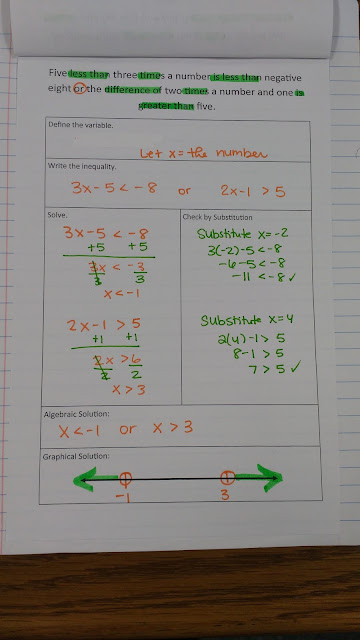 Five less than three times a number is less than negative
eight or the difference of two times a number and one is
greater than five.
Define the variable.
Let x = the number
Write the inequality.
3x-5 < -8 or 2x-1 > 5
Solve.
3x-5 < -8
+5 +5
3x < -3
3 3
x < -1
2x-1 > 5
+1 +1
2x > 6
2 2
x > 3
Check by Substitution
Substitute x=-2
3(-2)-5 < -8
-6-5 < -8
-11 < -8 ✓
Substitute x=4
2(4)-1 > 5
8-1 > 5
7 > 5 ✓
Algebraic Solution:
x < -1 or x > 3
Graphical Solution:
-1 3